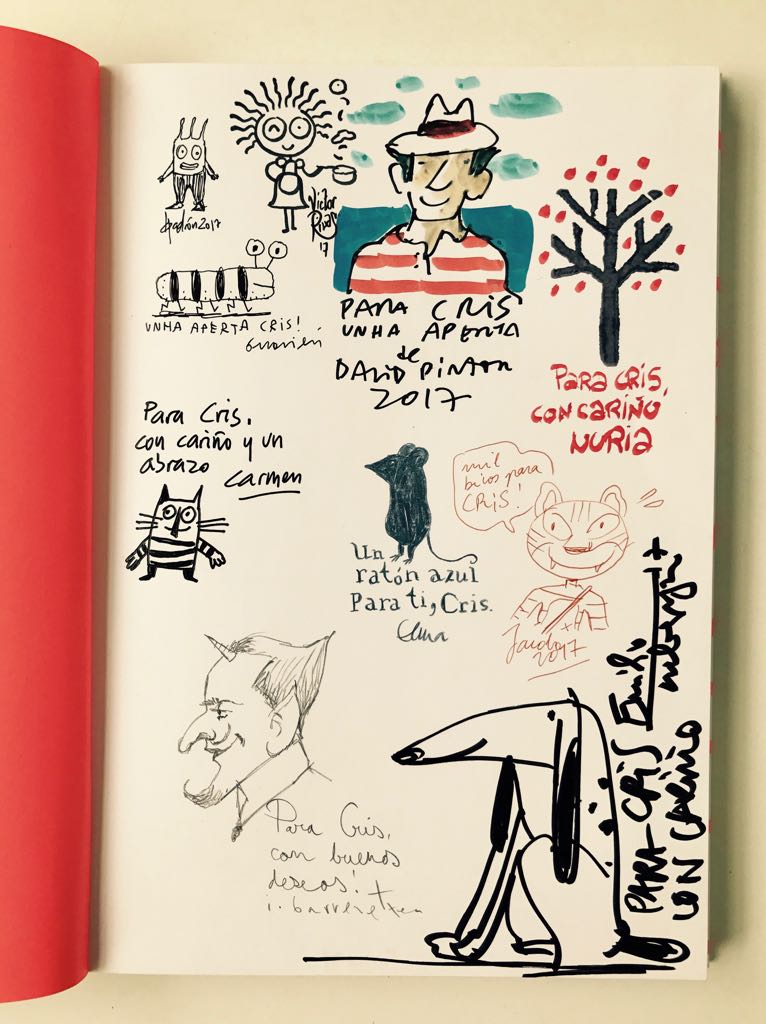 padrón 2017
Víctor
Rivas
17
UNHA APERTA CRIS!
PARA CRIS
UNHA APERTA
de
DAVID PINTOR
2017
PARA CRIS,
CON CARIÑO
NURIA
Para Cris,
con cariño y un
abrazo
Carmen
mil
bicos para
CRIS!
Un
ratón azul
Para ti, Cris.
Elena
Jacobo
2017
Para Cris,
con buenos
deseos!
i. barrenetxea
PARA CRIS
CON CARIÑO
Emilio